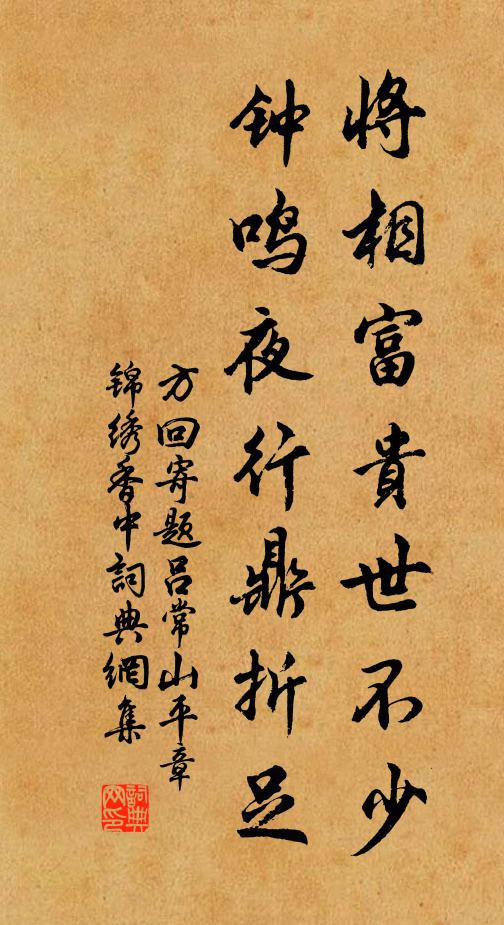 将相富貴世不少
钟鸣夜行鼎折足
方回寄题吕常山平章
锦绣香中詞典網集
詞典网印